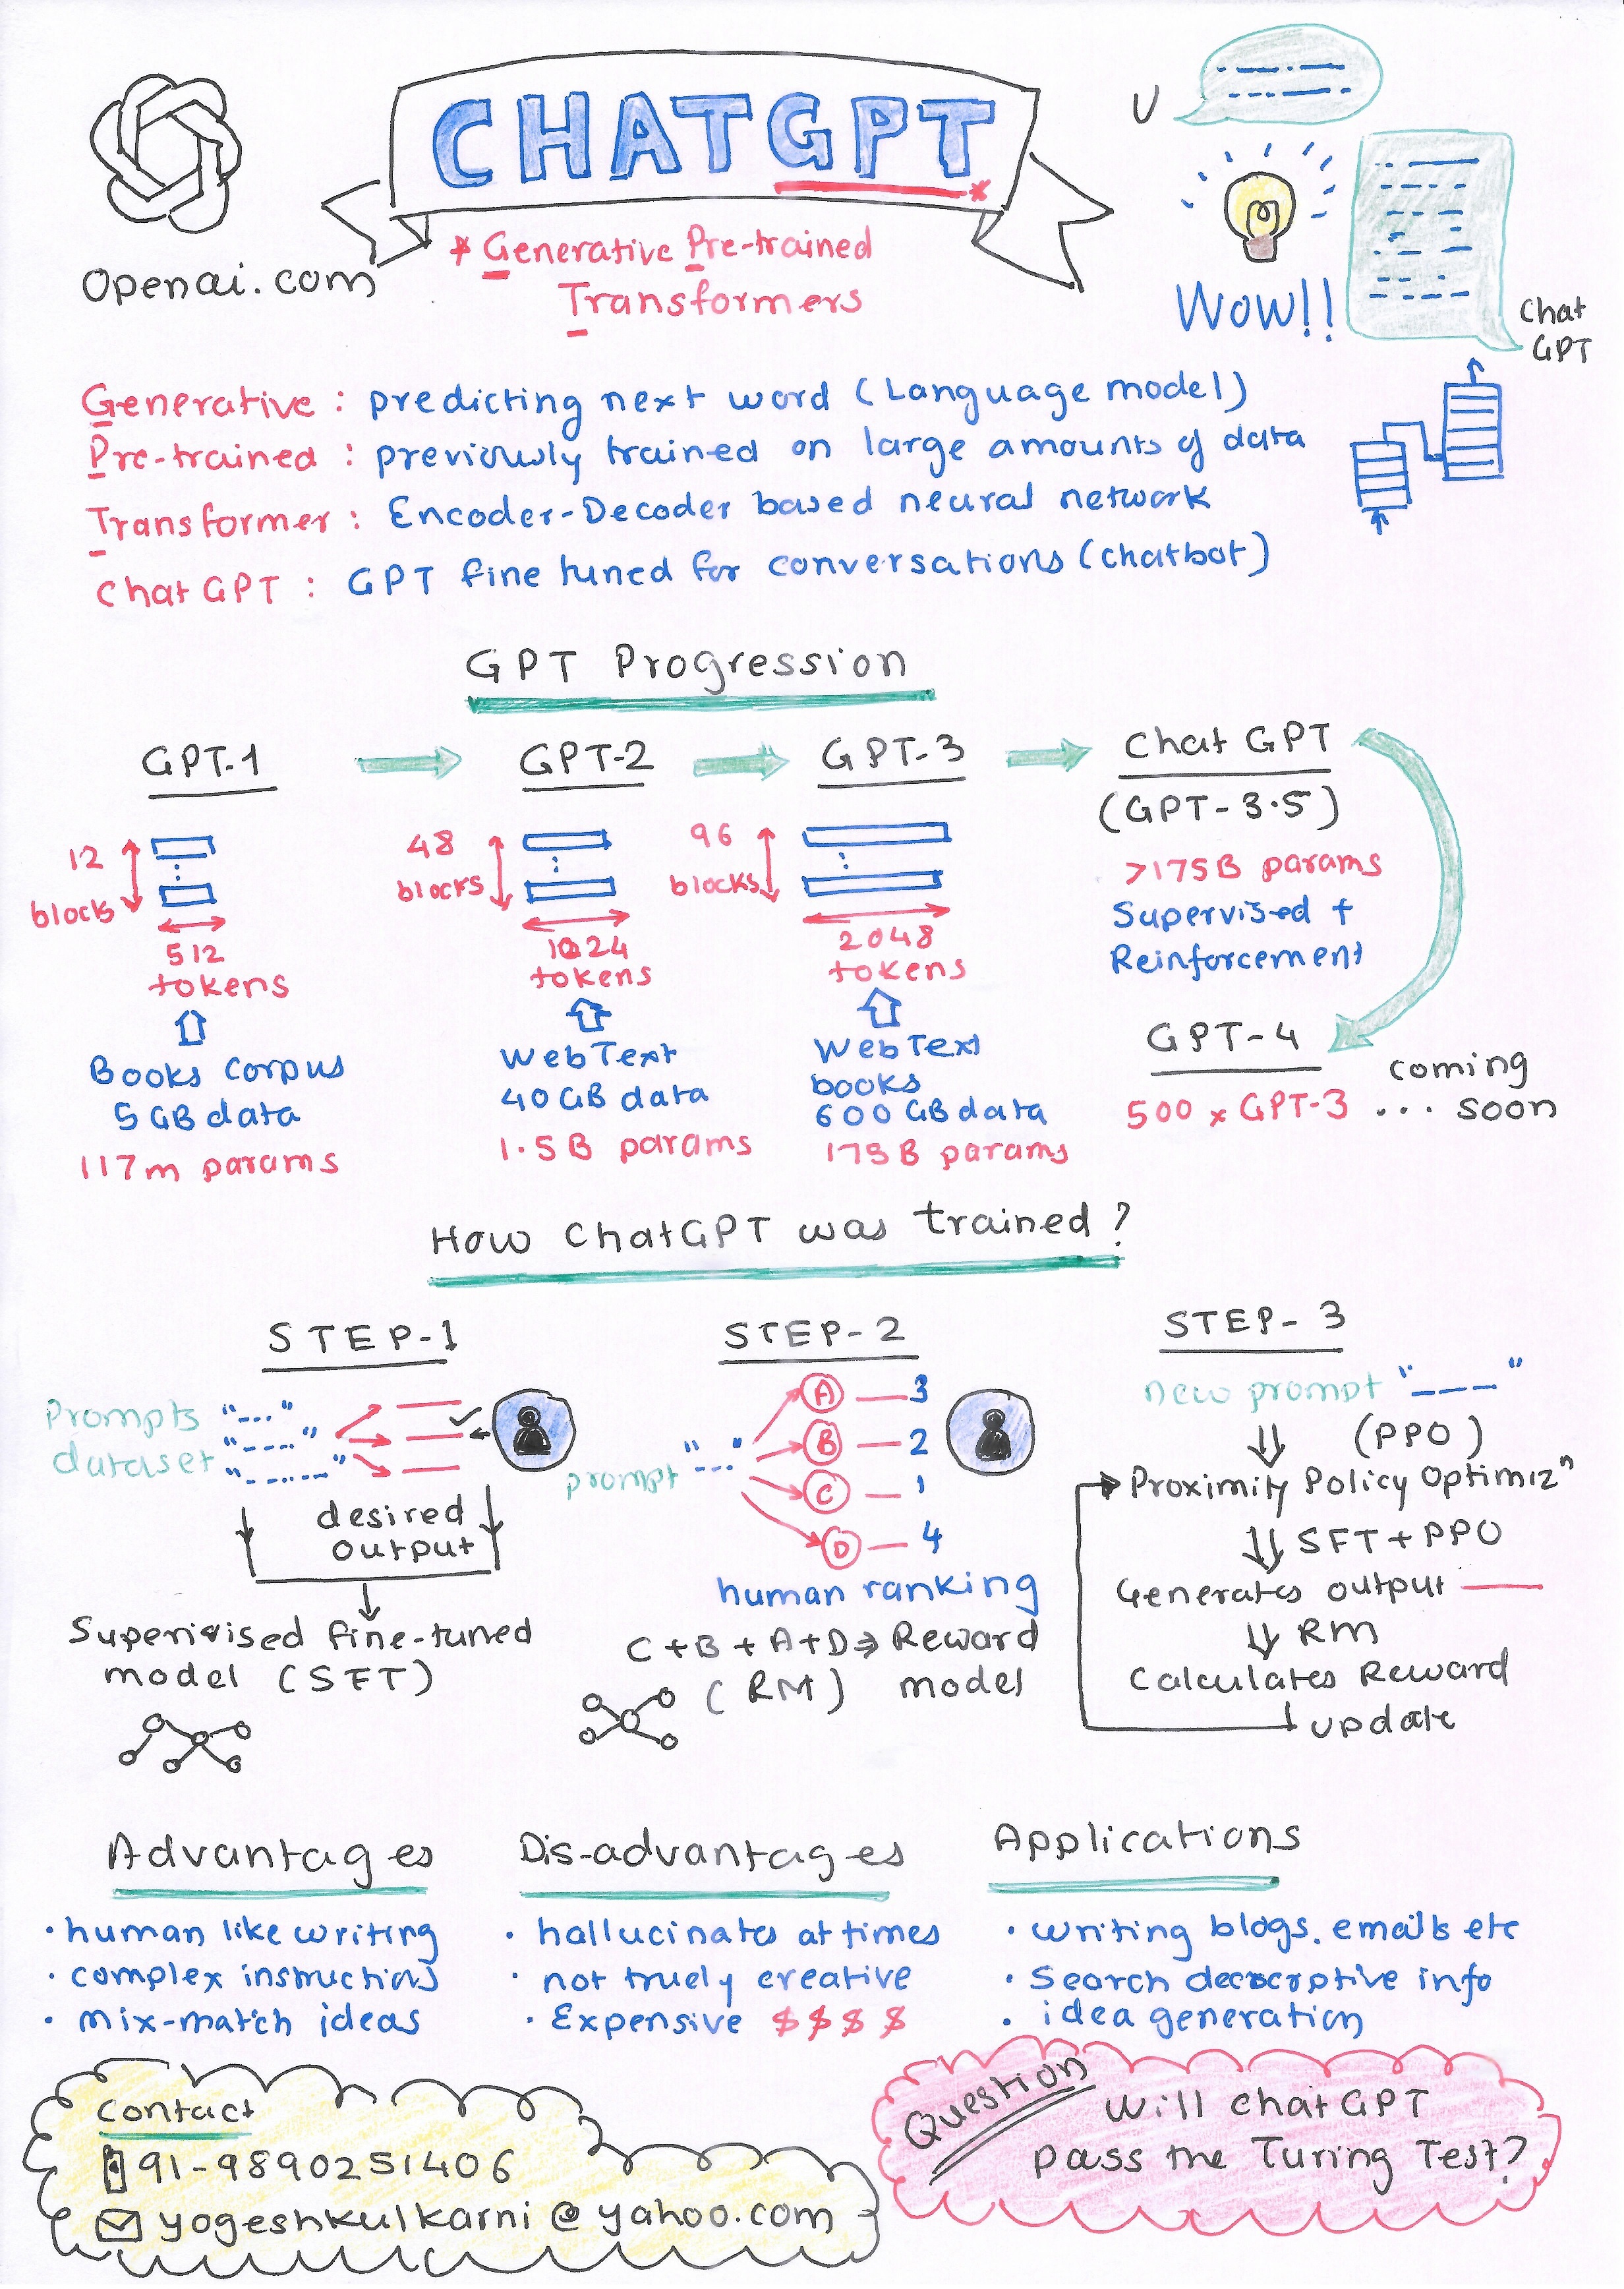 CHATGPT*
Openai.com
* Generative Pre-trained
Transformers
U
Wow!!
Chat
GPT
Generative : predicting next word (Language model)
Pre-trained : previously trained on large amounts of data
Transformer : Encoder-Decoder based neural network
ChatGPT : GPT fine tuned for conversations (chatbot)
GPT Progression
GPT-1
12
blocks
512
tokens
Books Corpus
5 GB data
117m params
GPT-2
48
blocks
1024
tokens
WebText
40 GB data
1.5 B params
GPT-3
96
blocks
2048
tokens
WebText
books
600 GB data
175B params
Chat GPT
(GPT-3.5)
>175B params
Supervised +
Reinforcement
GPT-4
500 x GPT-3 ... coming
soon
How ChatGPT was trained?
STEP-1
Prompts
dataset
"---"
"----"
"------"
desired
output
Supervised fine-tuned
model (SFT)
STEP-2
prompt "---"
A — 3
B — 2
C — 1
D — 4
human ranking
C+B+A+D⇒ Reward
(RM) model
STEP-3
new prompt "___"
(PPO)
Proximity Policy Optimizⁿ
SFT+PPO
Generates output —
RM
Calculates Reward
update
Advantages
• human like writing
• complex instructions
• mix-match ideas
Dis-advantages
• hallucinates at times
• not truely creative
• Expensive $ $ $ $
Applications
• writing blogs, emails etc
• Search info
• idea generation
Contact
91-9890251406
yogeshkulkarni@yahoo.com
Question
Will chatGPT
pass the Turing Test?